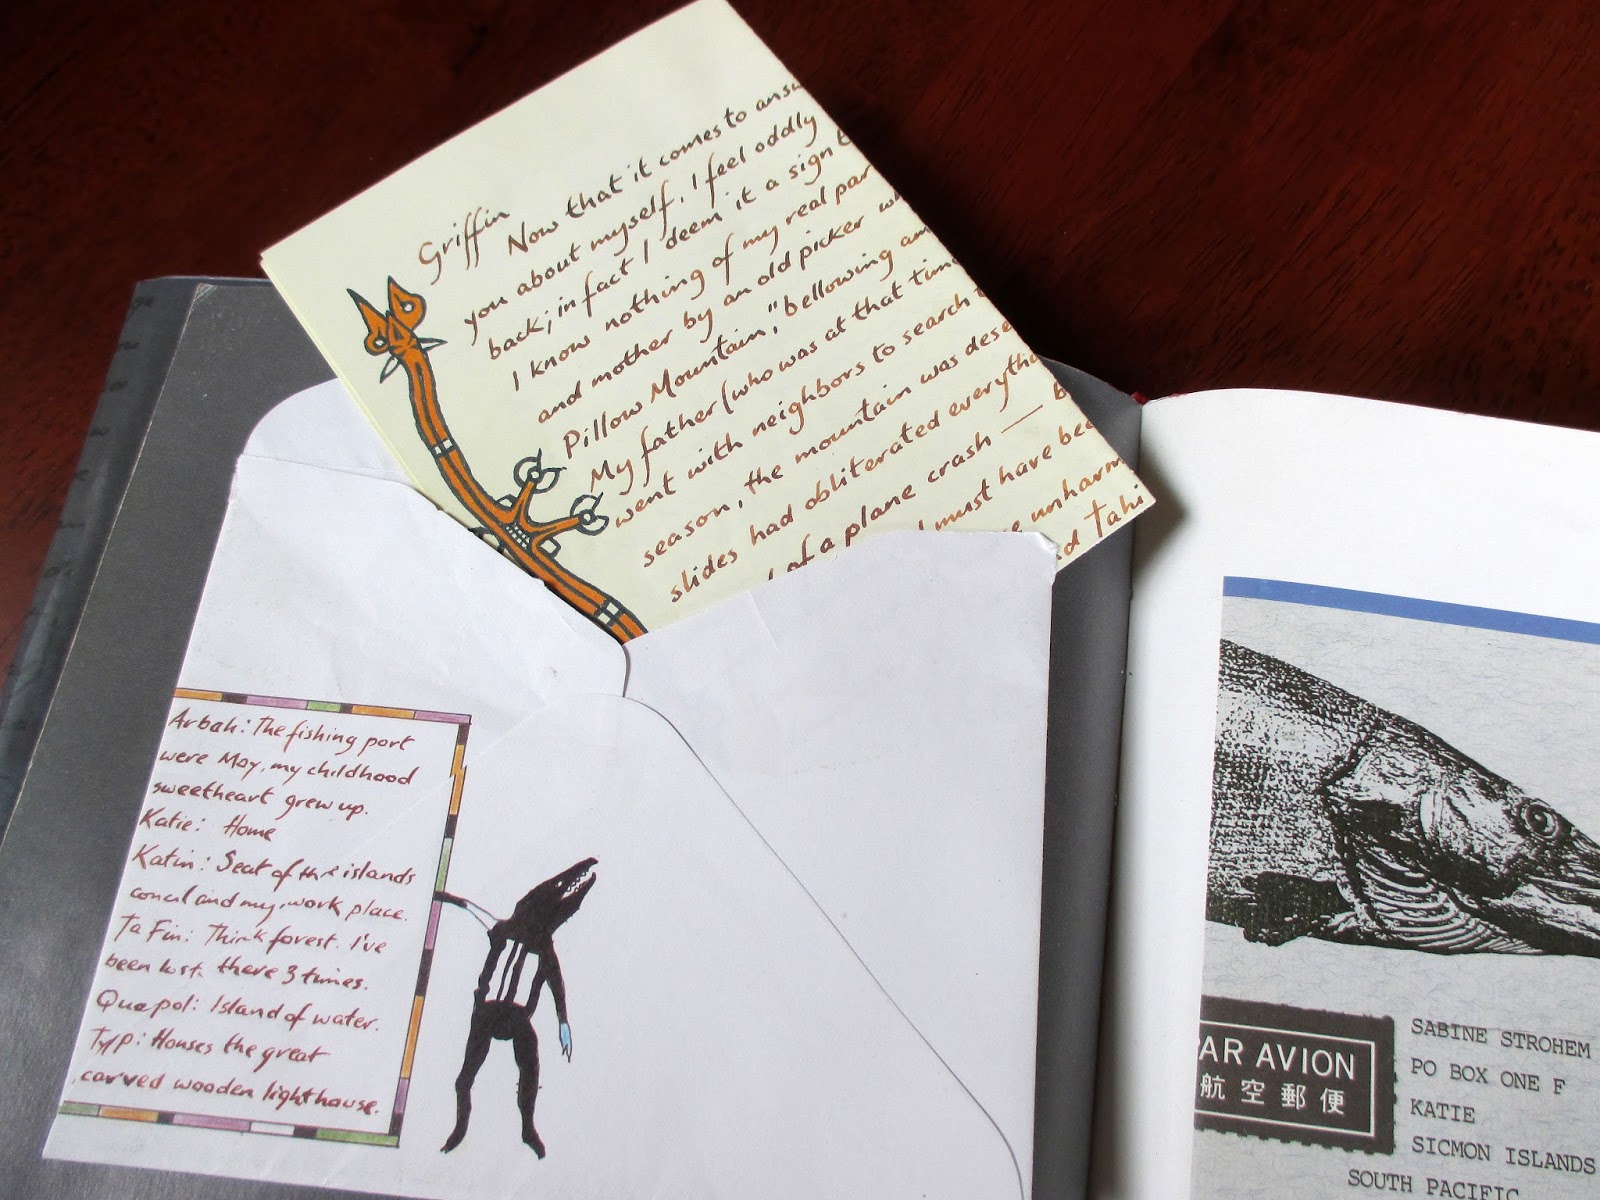 Griffin
Now that it comes to answ
you about myself, I feel oddly
back; in fact I deem it a sign t
I know nothing of my real par
and mother by an old picker w
Pillow Mountain," bellowing an
My father (who was at that time
went with neighbors to search
season, the mountain was dese
slides had obliterated everythi
of a plane crash — b
I must have bee
unharm
d Tahi
Arbah: The fishing port
were May, my childhood
sweetheart grew up.
Katie: Home
Katin: Seat of the islands
concil and my work place.
Ta Fin: Think forest. I've
been lost there 3 times.
Quepol: Island of water.
Typ: Houses the great
carved wooden lighthouse.
PAR AVION
航空郵便
SABINE STROHEM
PO BOX ONE F
KATIE
SICMON ISLANDS
SOUTH PACIFIC